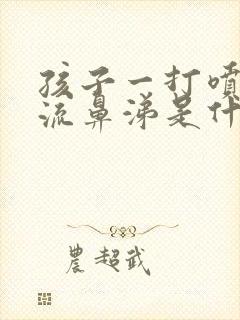 孩子一打噴
流鼻涕是什
農超武